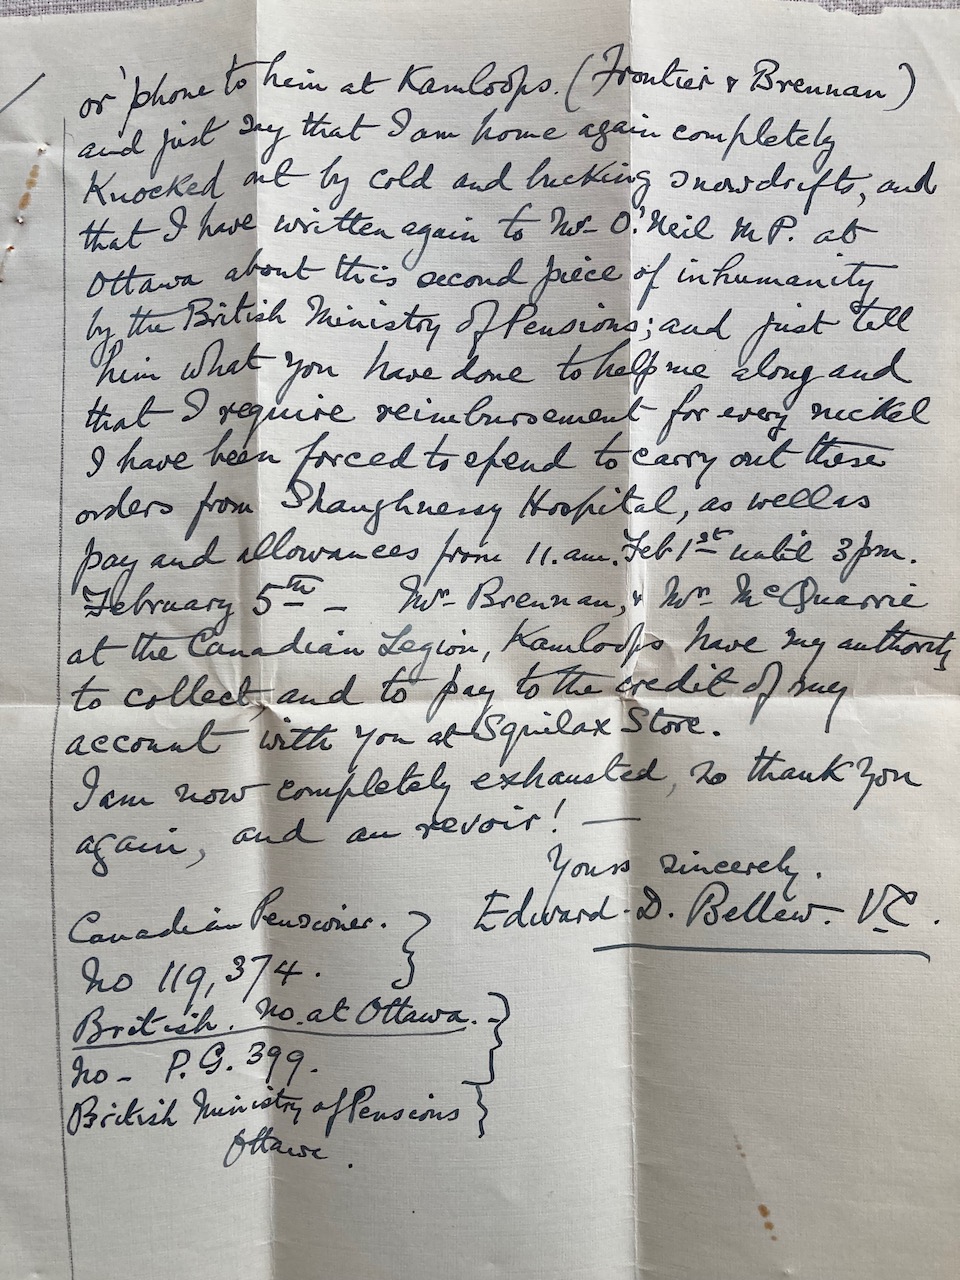 or 'phone to him at Kamloops. (Frontier & Brennan)
and just say that I am home again completely
Knocked out by cold and bucking snowdrifts, and
that I have written again to Mr- O'Neil M.P. at
Ottawa about this second piece of inhumanity
by the British Ministry of Pensions; and just tell
him what you have done to help me along and
that I require reimbursement for every nickel
I have been forced to spend to carry out these
orders from Shaughnessy Hospital, as well as
pay and allowances from 11.am. Feb 1st until 3pm.
February 5th - Mr- Brennan, & Mr- McQuarrie
at the Canadian Legion, Kamloops have my authority
to collect, and to pay to the credit of my
account with you at Squilax Store.
I am now completely exhausted, so thank you
again, and au revoir! —
Yours sincerely.
Edward. D. Bellew. VC.
Canadian Pensioner.
No 119,374.
British. No. at Ottawa. -
No - P.G. 399.
British Ministry of Pensions
Ottawa.